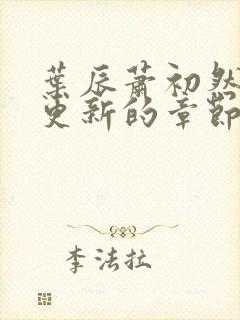 葉辰蕭初然
更新的章節
李法拉